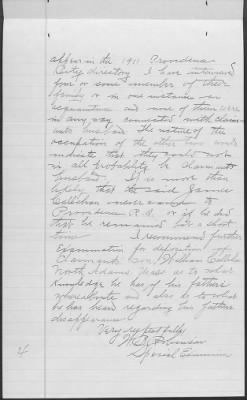 appear in the 1911 Providence
City directory I have interviewed
four or some member of their
family or in one instance an
acquaintance and none of them were
in any way connected with claim-
ants husband. The nature of the
occupation of the other two would
indicate that they could not
in all probability be claimants
husband. It is more than
likely that the said James
Callahan never came to
Providence R.I. or if he did
that he remained but a short
time. I recommend further
Examination for deposition of
Claimants Son William Callahan
North Adams Mass as to what
knowledge he has of his fathers
whereabouts and also as to what
he has heard regarding his fathers
disappearance
Very respectfully
Robinson
Special Examiner
4